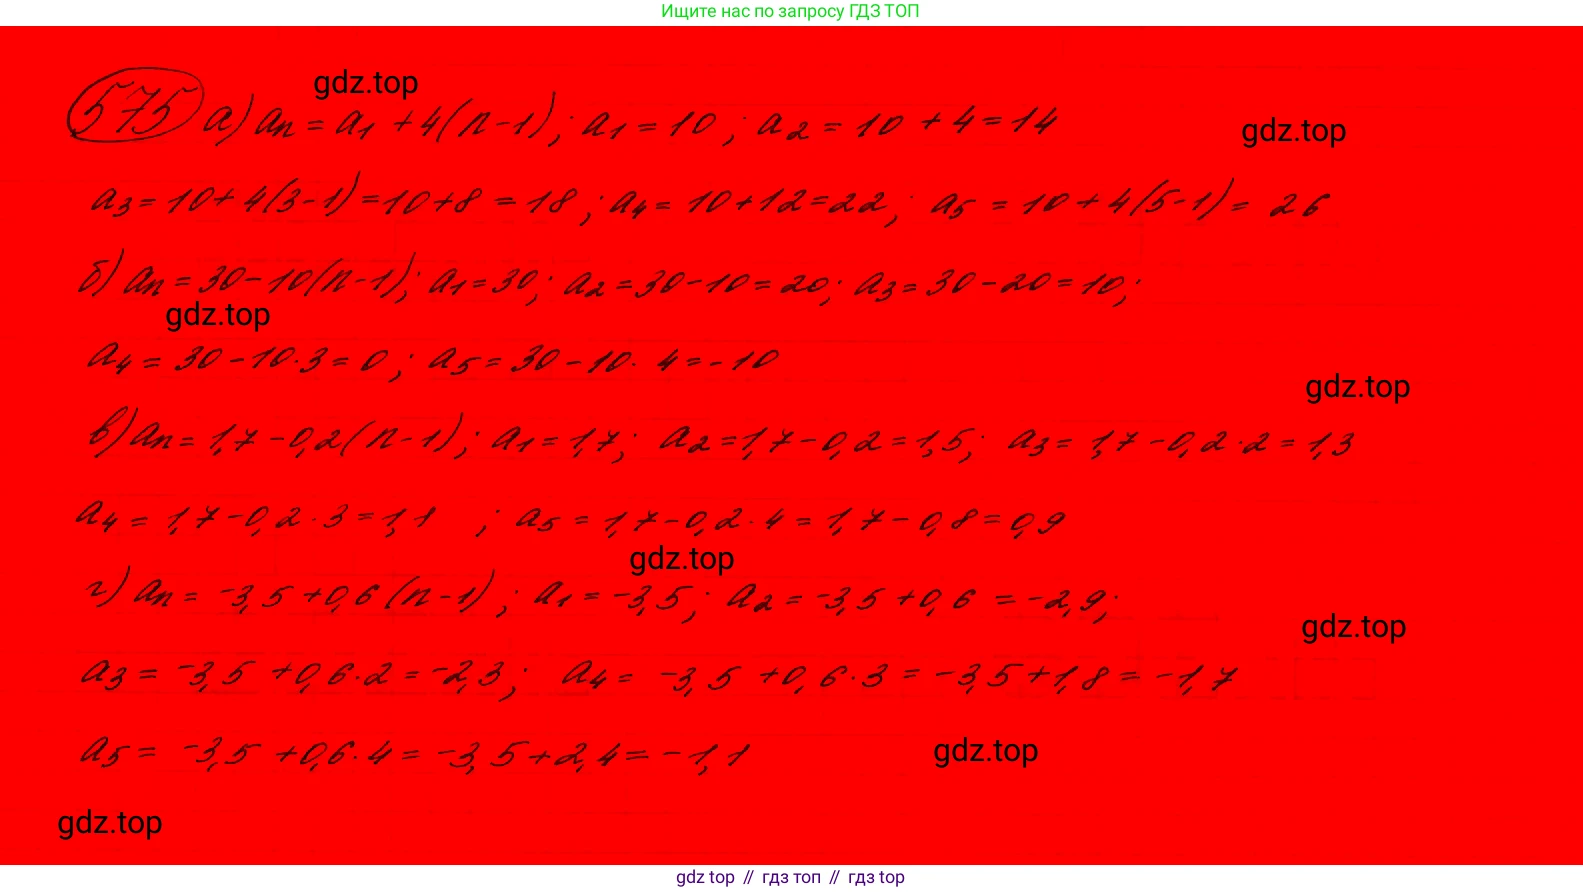 Ищите нас по запросу ГДЗ ТОП
gdz.top
575 а) aₙ = a₁ + 4(n-1); a₁ = 10; a₂ = 10 + 4 = 14
gdz.top
a₃ = 10 + 4(3-1) = 10 + 8 = 18; a₄ = 10 + 12 = 22; a₅ = 10 + 4(5-1) = 26
б) aₙ = 30 - 10(n-1); a₁ = 30; a₂ = 30 - 10 = 20; a₃ = 30 - 20 = 10;
gdz.top
a₄ = 30 - 10·3 = 0; a₅ = 30 - 10·4 = -10
gdz.top
в) aₙ = 1,7 - 0,2(n-1); a₁ = 1,7; a₂ = 1,7 - 0,2 = 1,5; a₃ = 1,7 - 0,2·2 = 1,3
a₄ = 1,7 - 0,2·3 = 1,1; a₅ = 1,7 - 0,2·4 = 1,7 - 0,8 = 0,9
gdz.top
г) aₙ = -3,5 + 0,6(n-1); a₁ = -3,5; a₂ = -3,5 + 0,6 = -2,9;
gdz.top
a₃ = -3,5 + 0,6·2 = -2,3; a₄ = -3,5 + 0,6·3 = -3,5 + 1,8 = -1,7
a₅ = -3,5 + 0,6·4 = -3,5 + 2,4 = -1,1
gdz.top
gdz.top
gdz top // гдз топ // gdz top